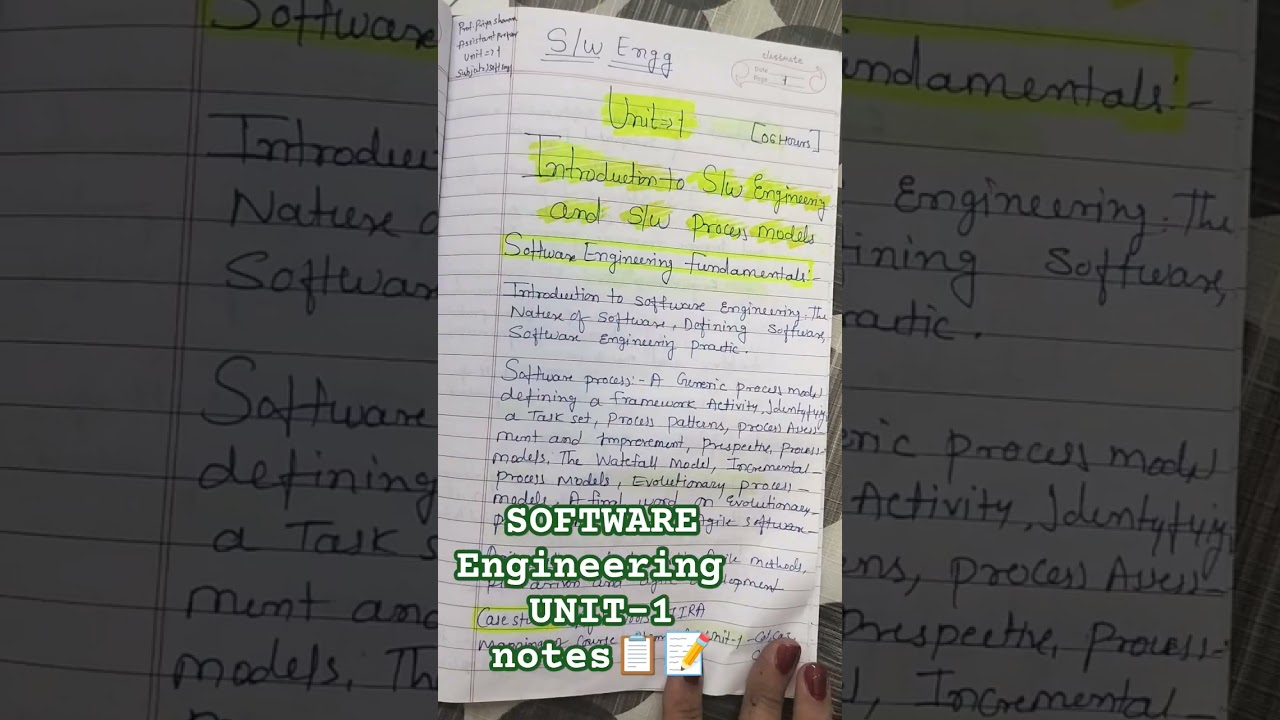 Prof. Priya Sharma
Assistant
Unit => 1
S/w Engg
classmate
Date
Page 1
Unit => 1
[06 Hours]
Introduction to S/w Engineerig
and s/w process models
Software Engineering Fundamentals:-
Introduction to software Engineering. The
Nature of Software, Defining Software,
Software Engineering practic.
Software process:- A Generic process model
defining a framework Activity, Identyfyig
a Task set, process patterns, process Assess-
ment and Improvement, prespective, process-
models, The Watefall Model, Incremental-
process Models, Evolutionary process-
models, A final word on Evolutionary-
software-
methods,
Case
JIRA
Unit-1
SOFTWARE
Engineering
UNIT-1
notes📋📝